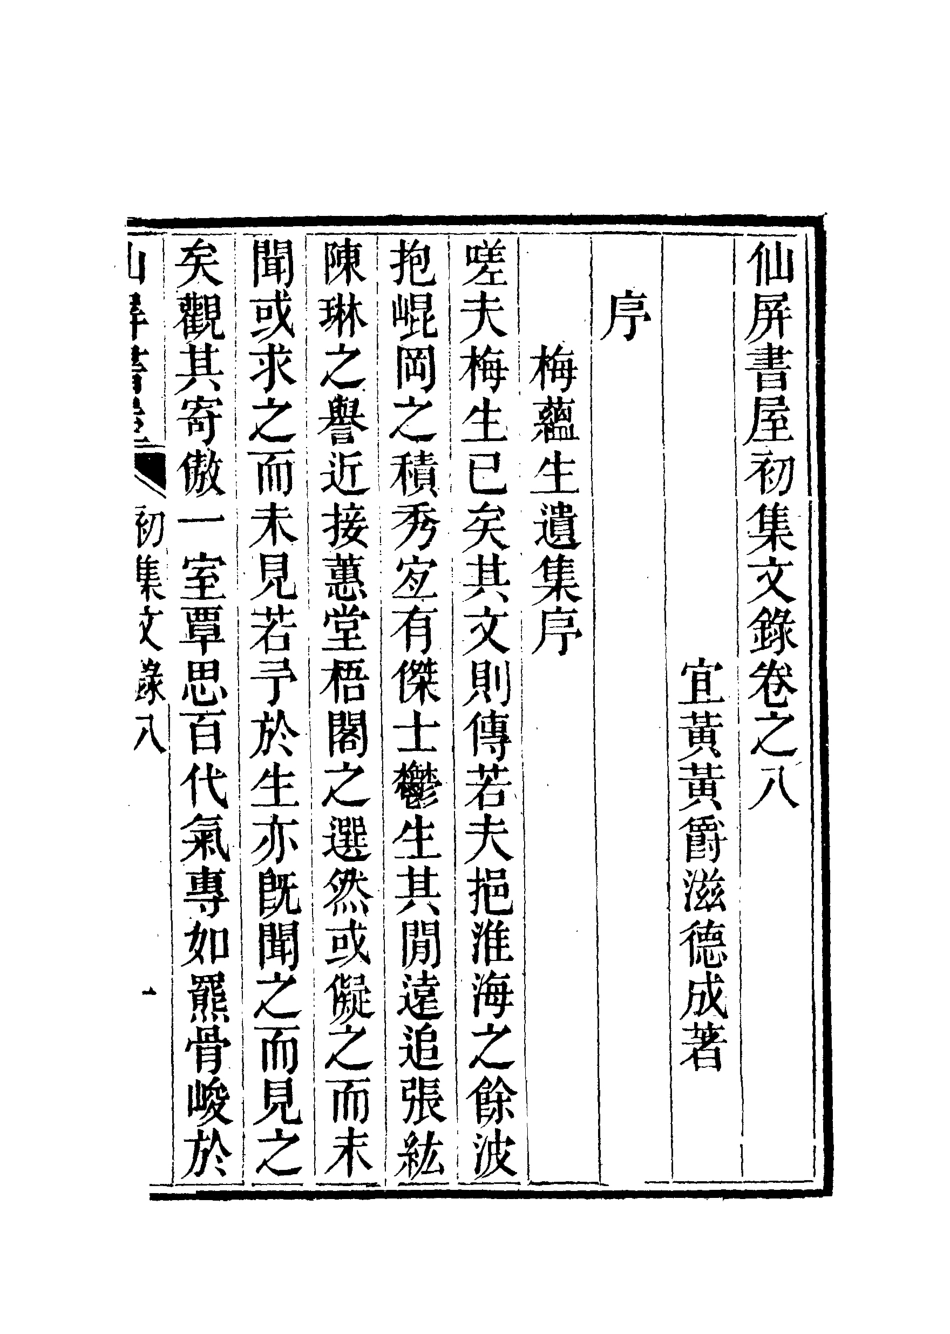 仙屏書屋初集文錄卷之八
宜黃黃爵滋德成著
序
梅蘊生遺集序
嗟夫梅生已矣其文則傳若夫挹淮海之餘波
抱崐岡之積秀㝎有傑士欝生其閒遠追張紘
陳琳之譽近接蕙堂梧閣之選然或儗之而未
聞或求之而未見若予於生亦旣聞之而見之
矣觀其寄傲一室覃思百代氣專如羆骨峻於
仙屏書屋 初集文錄八 一